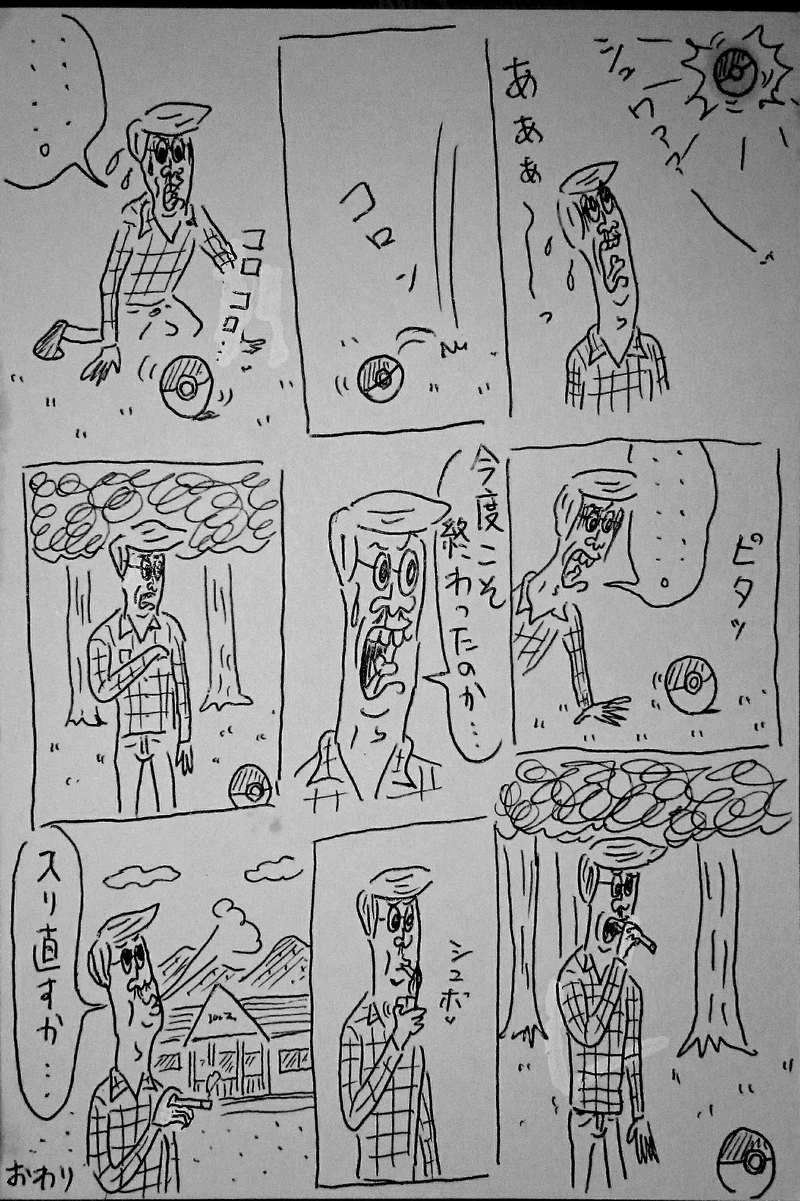 シュワァァ
あぁぁ〜っ
コロン
コロコロ…
……。
ピタッ
……。
今度こそ
終わったのか…
シュボ♡
スリ直すか…
おわり